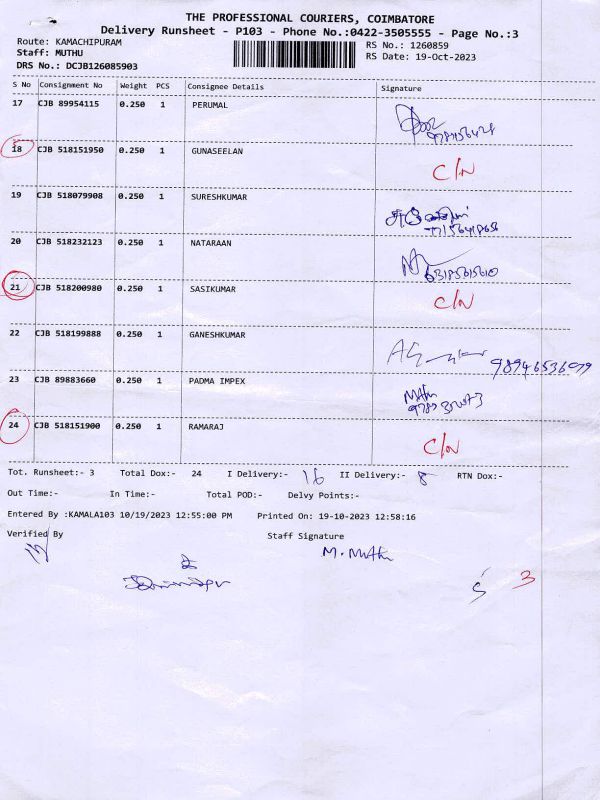 THE PROFESSIONAL COURIERS, COIMBATORE
Delivery Runsheet - P103 - Phone No.:0422-3505555 - Page No.:3
Route: KAMACHIPURAM
Staff: MUTHU
DRS No.: DCJB126085903
RS No.: 1260859
RS Date: 19-Oct-2023
S No Consignmnt No Weight PCS Consignee Details Signature
17 CJB 89954115 0.250 1 PERUMAL
18 CJB 518151950 0.250 1 GUNASEELAN C/N
19 CJB 518079908 0.250 1 SURESHKUMAR
20 CJB 518232123 0.250 1 NATARAAN
21 CJB 518200980 0.250 1 SASIKUMAR C/N
22 CJB 518199888 0.250 1 GANESHKUMAR
23 CJB 89883660 0.250 1 PADMA IMPEX
24 CJB 518151900 0.250 1 RAMARAJ C/N
Tot. Runsheet:- 3 Total Dox:- 24 I Delivery:- 16 II Delivery:- 8 RTN Dox:-
Out Time:- In Time:- Total POD:- Delvy Points:-
Entered By :KAMALA103 10/19/2023 12:55:00 PM Printed On: 19-10-2023 12:58:16
Verified By Staff Signature
M. Muthu
3